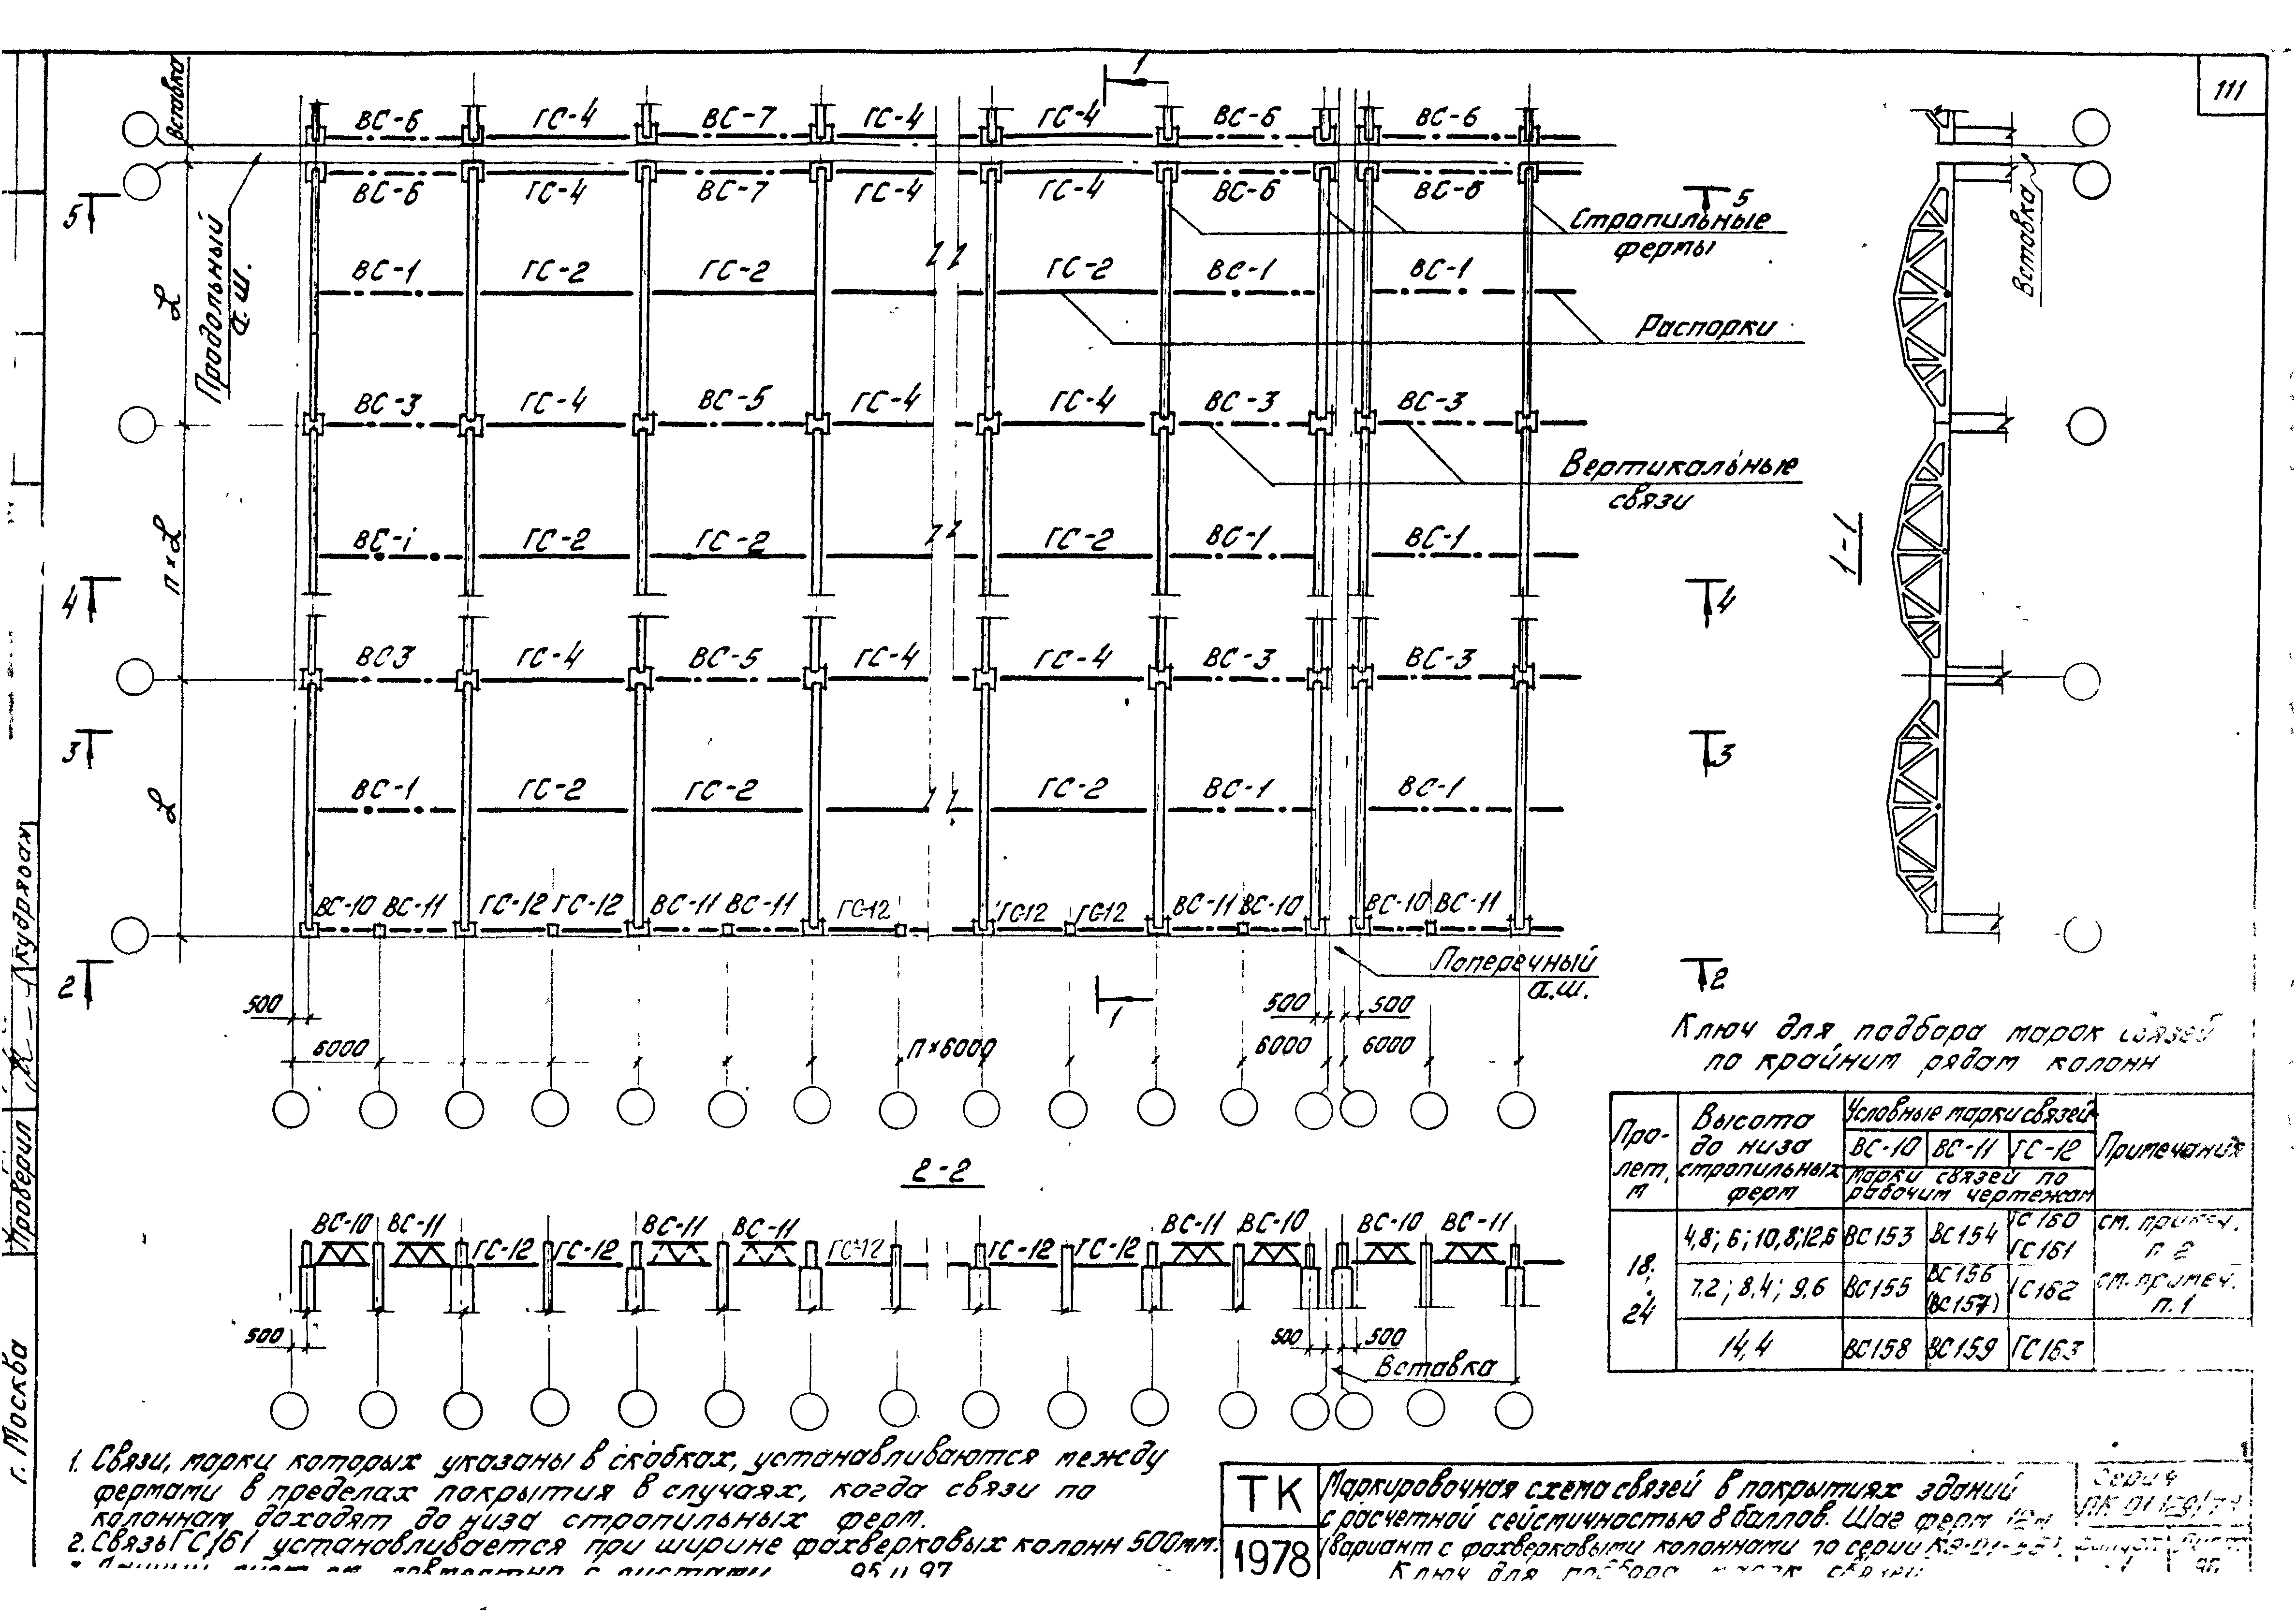 111
1
Вставка
ВС-6 ГС-4 ВС-7 ГС-4 ГС-4 ВС-6 ВС-6
ВС-6 ГС-4 ВС-7 ГС-4 ГС-4 ВС-6 ВС-6
5 5
Стропильные
фермы
Вставка
Продольный
а.ш.
L
ВС-1 ГС-2 ГС-2 ГС-2 ВС-1 ВС-1
Распорки
ВС-3 ГС-4 ВС-5 ГС-4 ГС-4 ВС-3 ВС-3
Вертикальные
связи
n×L
1-1
ВС-1 ГС-2 ГС-2 ГС-2 ВС-1 ВС-1
4 4
ВС3 ГС-4 ВС-5 ГС-4 ГС-4 ВС-3 ВС-3
3 3
L
ВС-1 ГС-2 ГС-2 ГС-2 ВС-1 ВС-1
ВС-10 ВС-11 ГС-12 ГС-12 ВС-11 ВС-11 ГС-12 ГС12 ГС12 ВС-11 ВС-10 ВС-10 ВС-11
2 2
Поперечный
а.ш.
500 1 500 500
6000 п×6000 6000 6000
Ключ для подбора марок связей
по крайним рядам колонн
Про-
лет,
м
Высота
до низа
стропильных
ферм
Условные марки связей
ВС-10 ВС-11 ГС-12
Марки связей по
рабочим чертежам
Примечания
18;
24
4,8; 6; 10,8; 12,6 ВС153 ВС154 ГС160
ГС161
см. примеч.
п. 2
7.2; 8,4; 9,6 ВС155 ВС156
(ВС157)
ГС162 см. примеч.
п.1
14,4 ВС158 ВС159 ГС163
2-2
ВС-10 ВС-11 ГС-12 ГС-12 ВС-11 ВС-11 ГС-12 ГС-12 ГС-12 ВС-11 ВС-10 ВС-10 ВС-11
500 500 500
Вставка
1. Связи, марки которых указаны в скобках, устанавливаются между
фермами в пределах покрытия в случаях, когда связи по
колоннам доходят до низа стропильных ферм.
2. Связь ГС161 устанавливается при ширине фахверковых колонн 500мм.
95 и 97
ТК
1978
Маркировочная схема связей в покрытиях зданий
с расчетной сейсмичностью 8 баллов. Шаг ферм 12м
(вариант с фахверковыми колоннами по серии
Ключ для подбора марок связей
Серия
ПК 01-129/78
Выпуск Лист
96
Проверил
Кудрявая
г. Москва